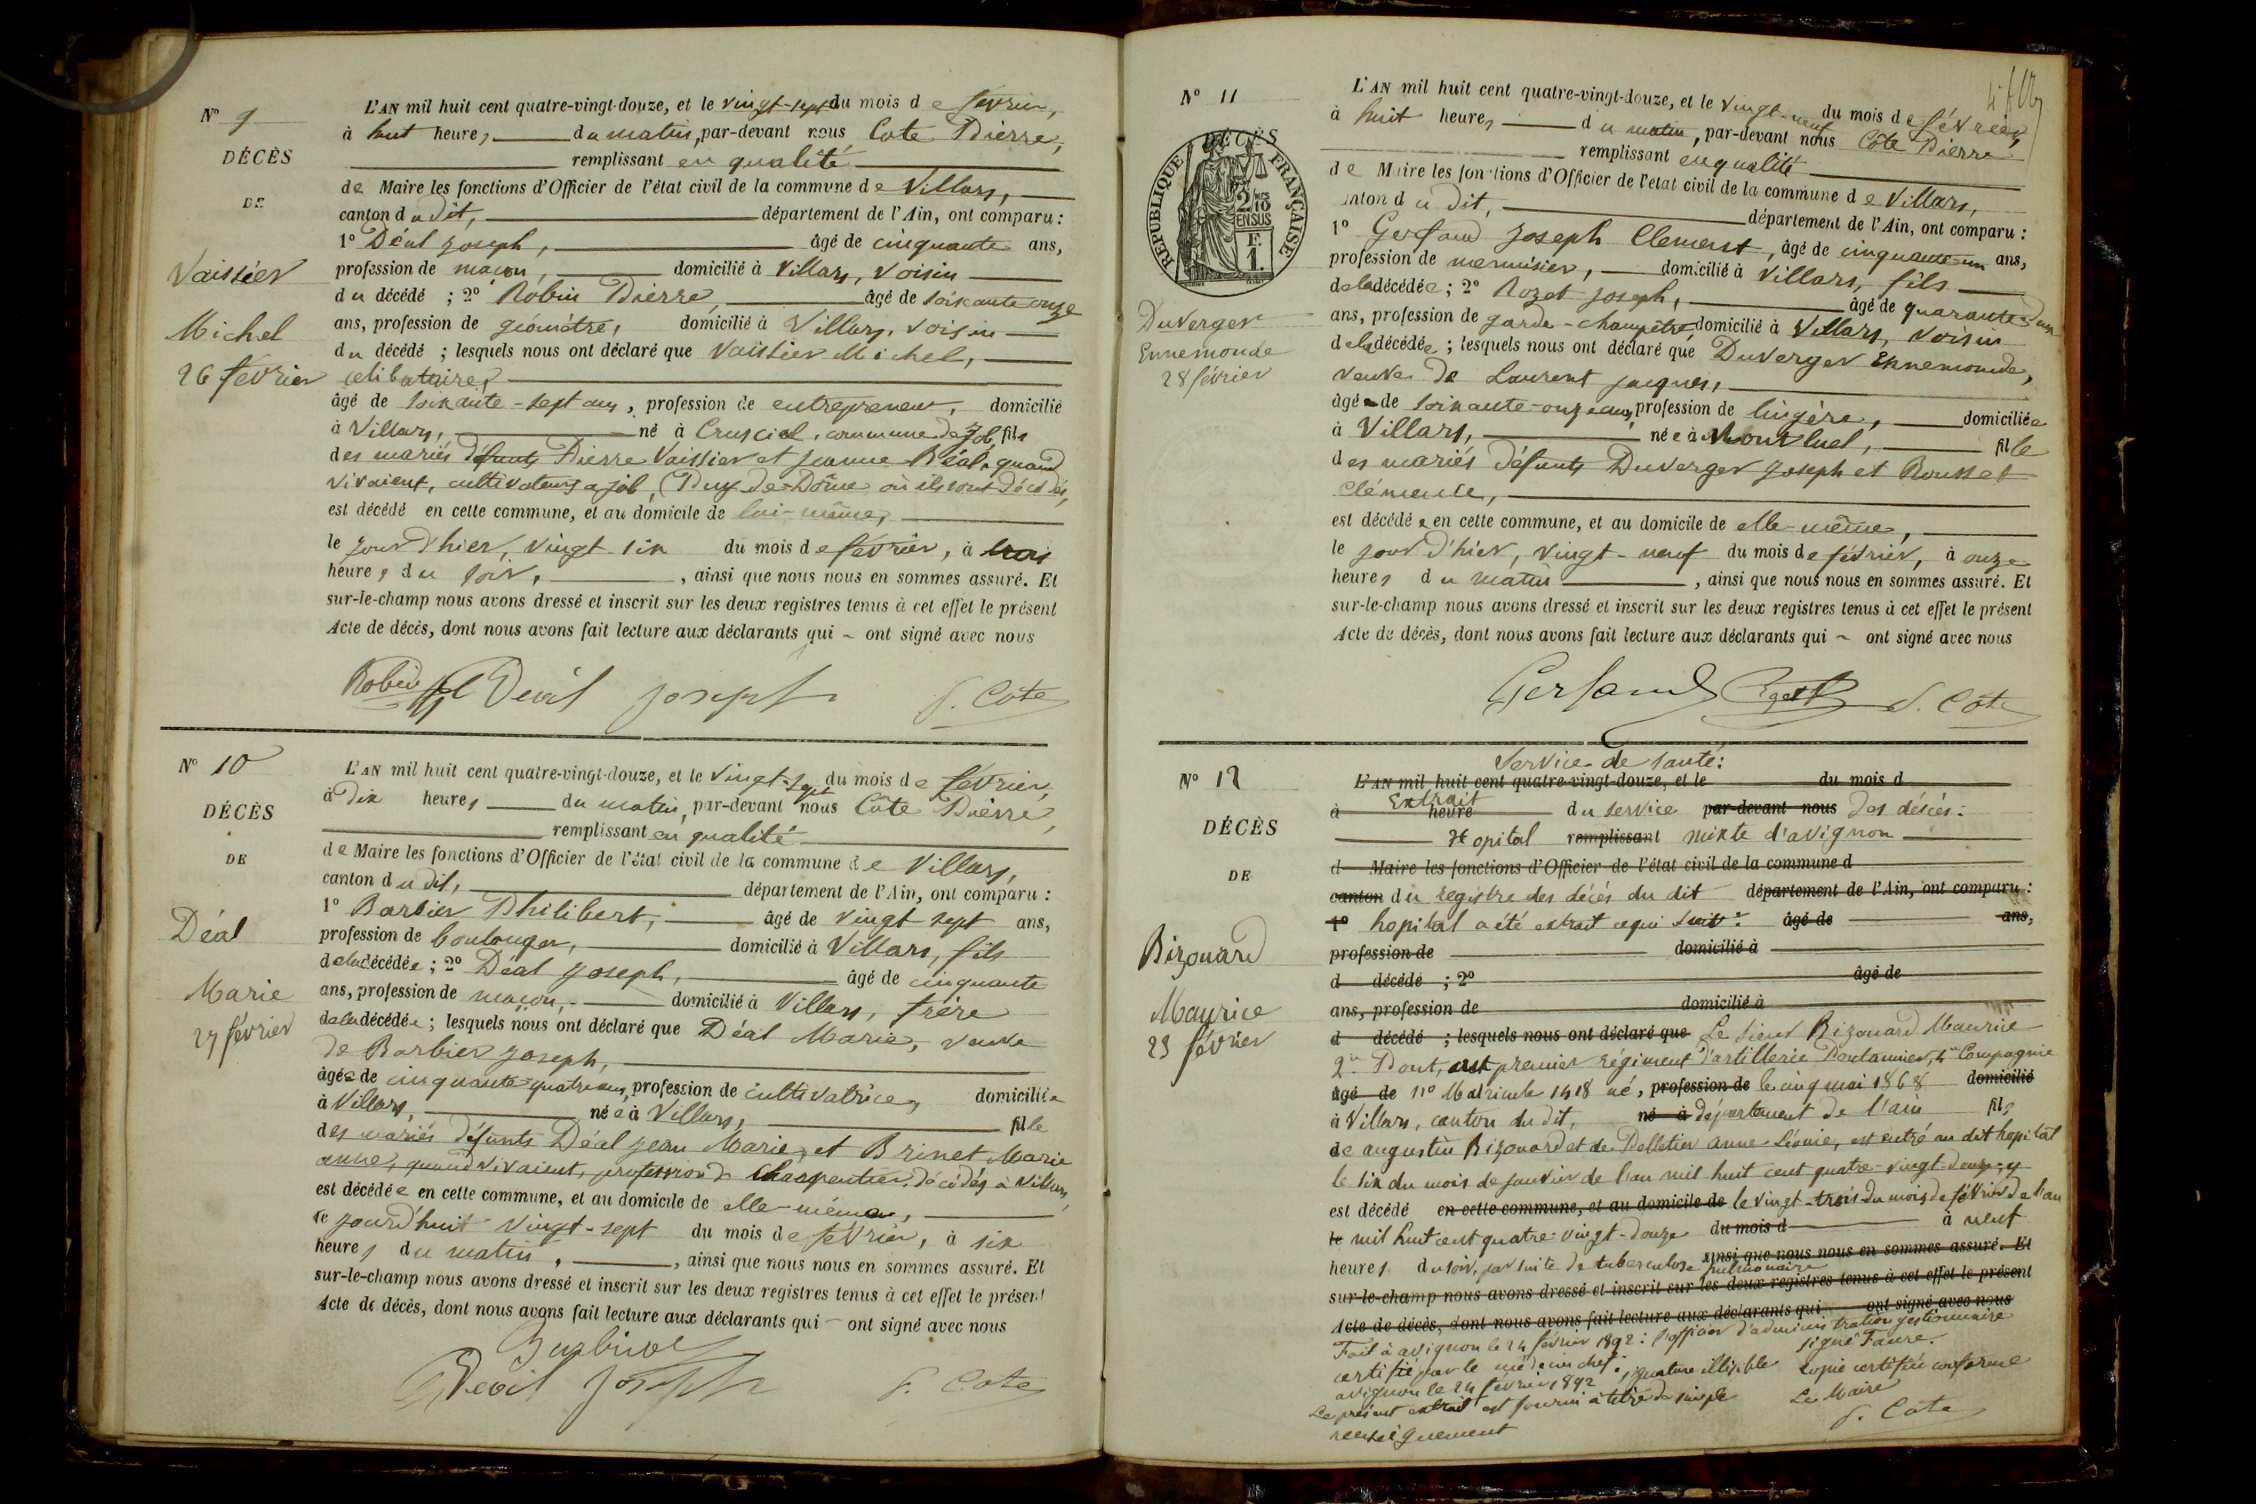 N° 9
DÉCÈS
DE
Vaissier
Michel
26 février
L'AN mil huit cent quatre-vingt-douze, et le vingt-sept du mois de février,
à huit heures du matin, par-devant nous Cote Pierre,
remplissant en qualité
de Maire les fonctions d'Officier de l'état civil de la commune de Villars,
canton du dit, département de l'Ain, ont comparu :
1° Déal Joseph, âgé de cinquante ans,
profession de maçon, domicilié à Villars, voisin
du décédé ; 2° Robin Pierre, âgé de soixante onze
ans, profession de géomètre, domicilié à Villars, voisin
du décédé ; lesquels nous ont déclaré que Vaissier Michel,
célibataire,
âgé de soixante-sept ans, profession de entrepreneur, domicilié
à Villars, né à Crusciol, commune de Job, fils
des mariés défunts Pierre Vaissier et Jeanne Béal, quand
vivaient, cultivateurs à Job, (Puy de-Dôme où ils sont décédés,
est décédé en cette commune, et au domicile de lui-même,
le jour d'hier, vingt-six du mois de février, à trois
heures du soir, , ainsi que nous nous en sommes assuré. Et
sur-le-champ nous avons dressé et inscrit sur les deux registres tenus à cet effet le présent
Acte de décès, dont nous avons fait lecture aux déclarants qui ~ ont signé avec nous
Robin Deal Joseph P. Cote
N° 10
DÉCÈS
DE
Déal
Marie
27 février
L'AN mil huit cent quatre-vingt-douze, et le vingt-sept du mois de février,
à dix heures du matin, par-devant nous Côte Pierre,
remplissant en qualité
de Maire les fonctions d'Officier de l'état civil de la commune de Villars,
canton du dit, département de l'Ain, ont comparu :
1° Barbier Philibert, âgé de vingt sept ans,
profession de boulanger, domicilié à Villars, fils
de la décédée ; 2° Déal Joseph, âgé de cinquante
ans, profession de maçon, domicilié à Villars, frère
de la décédée ; lesquels nous ont déclaré que Déal Marie, veuve
de Barbier Joseph,
âgée de cinquante-quatre ans, profession de cultivatrice, domiciliée
à Villars, née à Villars, fille
des mariés défunts Déal Jean Marie, et Brinet Marie
anne, quand vivaient, profession de charpentier, décédés à Villars,
est décédée en cette commune, et au domicile de elle-même,
le jourd'huit vingt-sept du mois de février, à six
heures du matin, , ainsi que nous nous en sommes assuré. Et
sur-le-champ nous avons dressé et inscrit sur les deux registres tenus à cet effet le présent
Acte de décès, dont nous avons fait lecture aux déclarants qui ~ ont signé avec nous
Barbier
Deal Joseph P. Cote
N° 11
RÉPUBLIQUE FRANÇAISE
2/10 EN SUS
F. 1.
DÉCÈS
Duverger
Ennemonde
28 février
L'AN mil huit cent quatre-vingt-douze, et le vingt-neuf du mois de février,
à huit heures du matin, par-devant nous Côte Pierre
remplissant en qualité
de Maire les fonctions d'Officier de l'état civil de la commune de Villars,
canton du dit, département de l'Ain, ont comparu :
1° Gerfaud Joseph Clement, âgé de cinquante-un ans,
profession de menuisier, domicilié à Villars, fils
de la décédée ; 2° Rozet Joseph, âgé de quarante-
ans, profession de garde-champêtre, domicilié à Villars, voisin
de la décédée ; lesquels nous ont déclaré que Duverger Ennemonde,
veuve de Laurent Jacques,
âgé de soixante-onze ans, profession de lingère, domiciliée
à Villars, née à Montluel, fille
des mariés défunts Duverger Joseph et Rousset
Clémence,
est décédée en cette commune, et au domicile de elle-même,
le jour d'hier, vingt-neuf du mois de février, à onze
heures du matin , ainsi que nous nous en sommes assuré. Et
sur-le-champ nous avons dressé et inscrit sur les deux registres tenus à cet effet le présent
Acte de décès, dont nous avons fait lecture aux déclarants qui ~ ont signé avec nous
Gerfaud Rozet P. Cote
N° 12
DÉCÈS
DE
Bizouard
Maurice
23 février
Service de santé :
L'AN mil huit cent quatre-vingt-douze, et le du mois d
à Extrait heure du service par-devant nous des décès :
Hopital remplissant mixte d'avignon
d Maire les fonctions d'Officier de l'état civil de la commune d
canton du registre des décès du dit département de l'Ain, ont comparu :
1° hopital a été extrait ce qui suit : âgé de ans,
profession de domicilié à
d décédé ; 2° âgé de
ans, profession de domicilié à
d décédé ; lesquels nous ont déclaré que Le sieur Bizouard Maurice
2e Pont, premier régiment d'artillerie Pontonnier, 4e Compagnie
âgé de n° Matricule 1418 né, profession de le cinq mai 1868 domicilié
à Villars, canton du dit, né à département de l'ain fils
de augustin Bizouard et de Pelletier anne Léonie, est entré au dit hopital
le six du mois de janvier de l'an mil huit cent quatre-vingt-douze, y
est décédé en cette commune, et au domicile de le vingt-trois du mois de février de l'an
le mil huit cent quatre-vingt-douze du mois d à neuf
heures du soir, par suite de tuberculose pulmonaire ainsi que nous nous en sommes assuré. Et
sur-le-champ nous avons dressé et inscrit sur les deux registres tenus à cet effet le présent
Acte de décès, dont nous avons fait lecture aux déclarants qui ont signé avec nous
Fait à avignon le 24 février 1892 : l'officier d'administration gestionnaire
signé Faure.
certifié par le médecin chef : signature illisible copie certifiée conforme
avignon le 24 février 1892 Le Maire
Le présent extrait est fourni à titre de simple P. Cote
renseignement